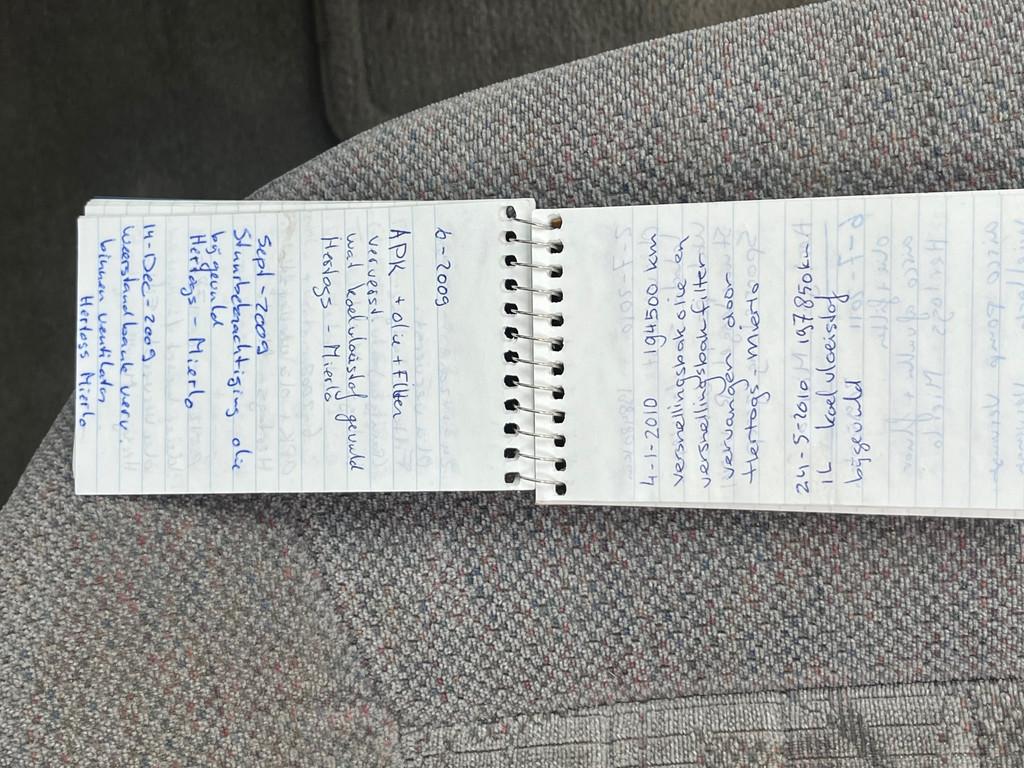 6-2009
APK + olie + Filter
ververst.
wat koelvloeistof gevuld
Hertogs - Mierlo
Sept - 2009
Stuurbekrachtiging olie
bijgevuld
Hertogs - Mierlo
14-Dec-2009
Weerstandbank verv.
binnen ventilator
Mierlo
4-1-2010 194500 km
versnellingsbak olie en
versnellingsbak filter
vervangen door
Hertogs - Mierlo
24-5-2010 197850km
1L koelvloeistof
bijgevuld